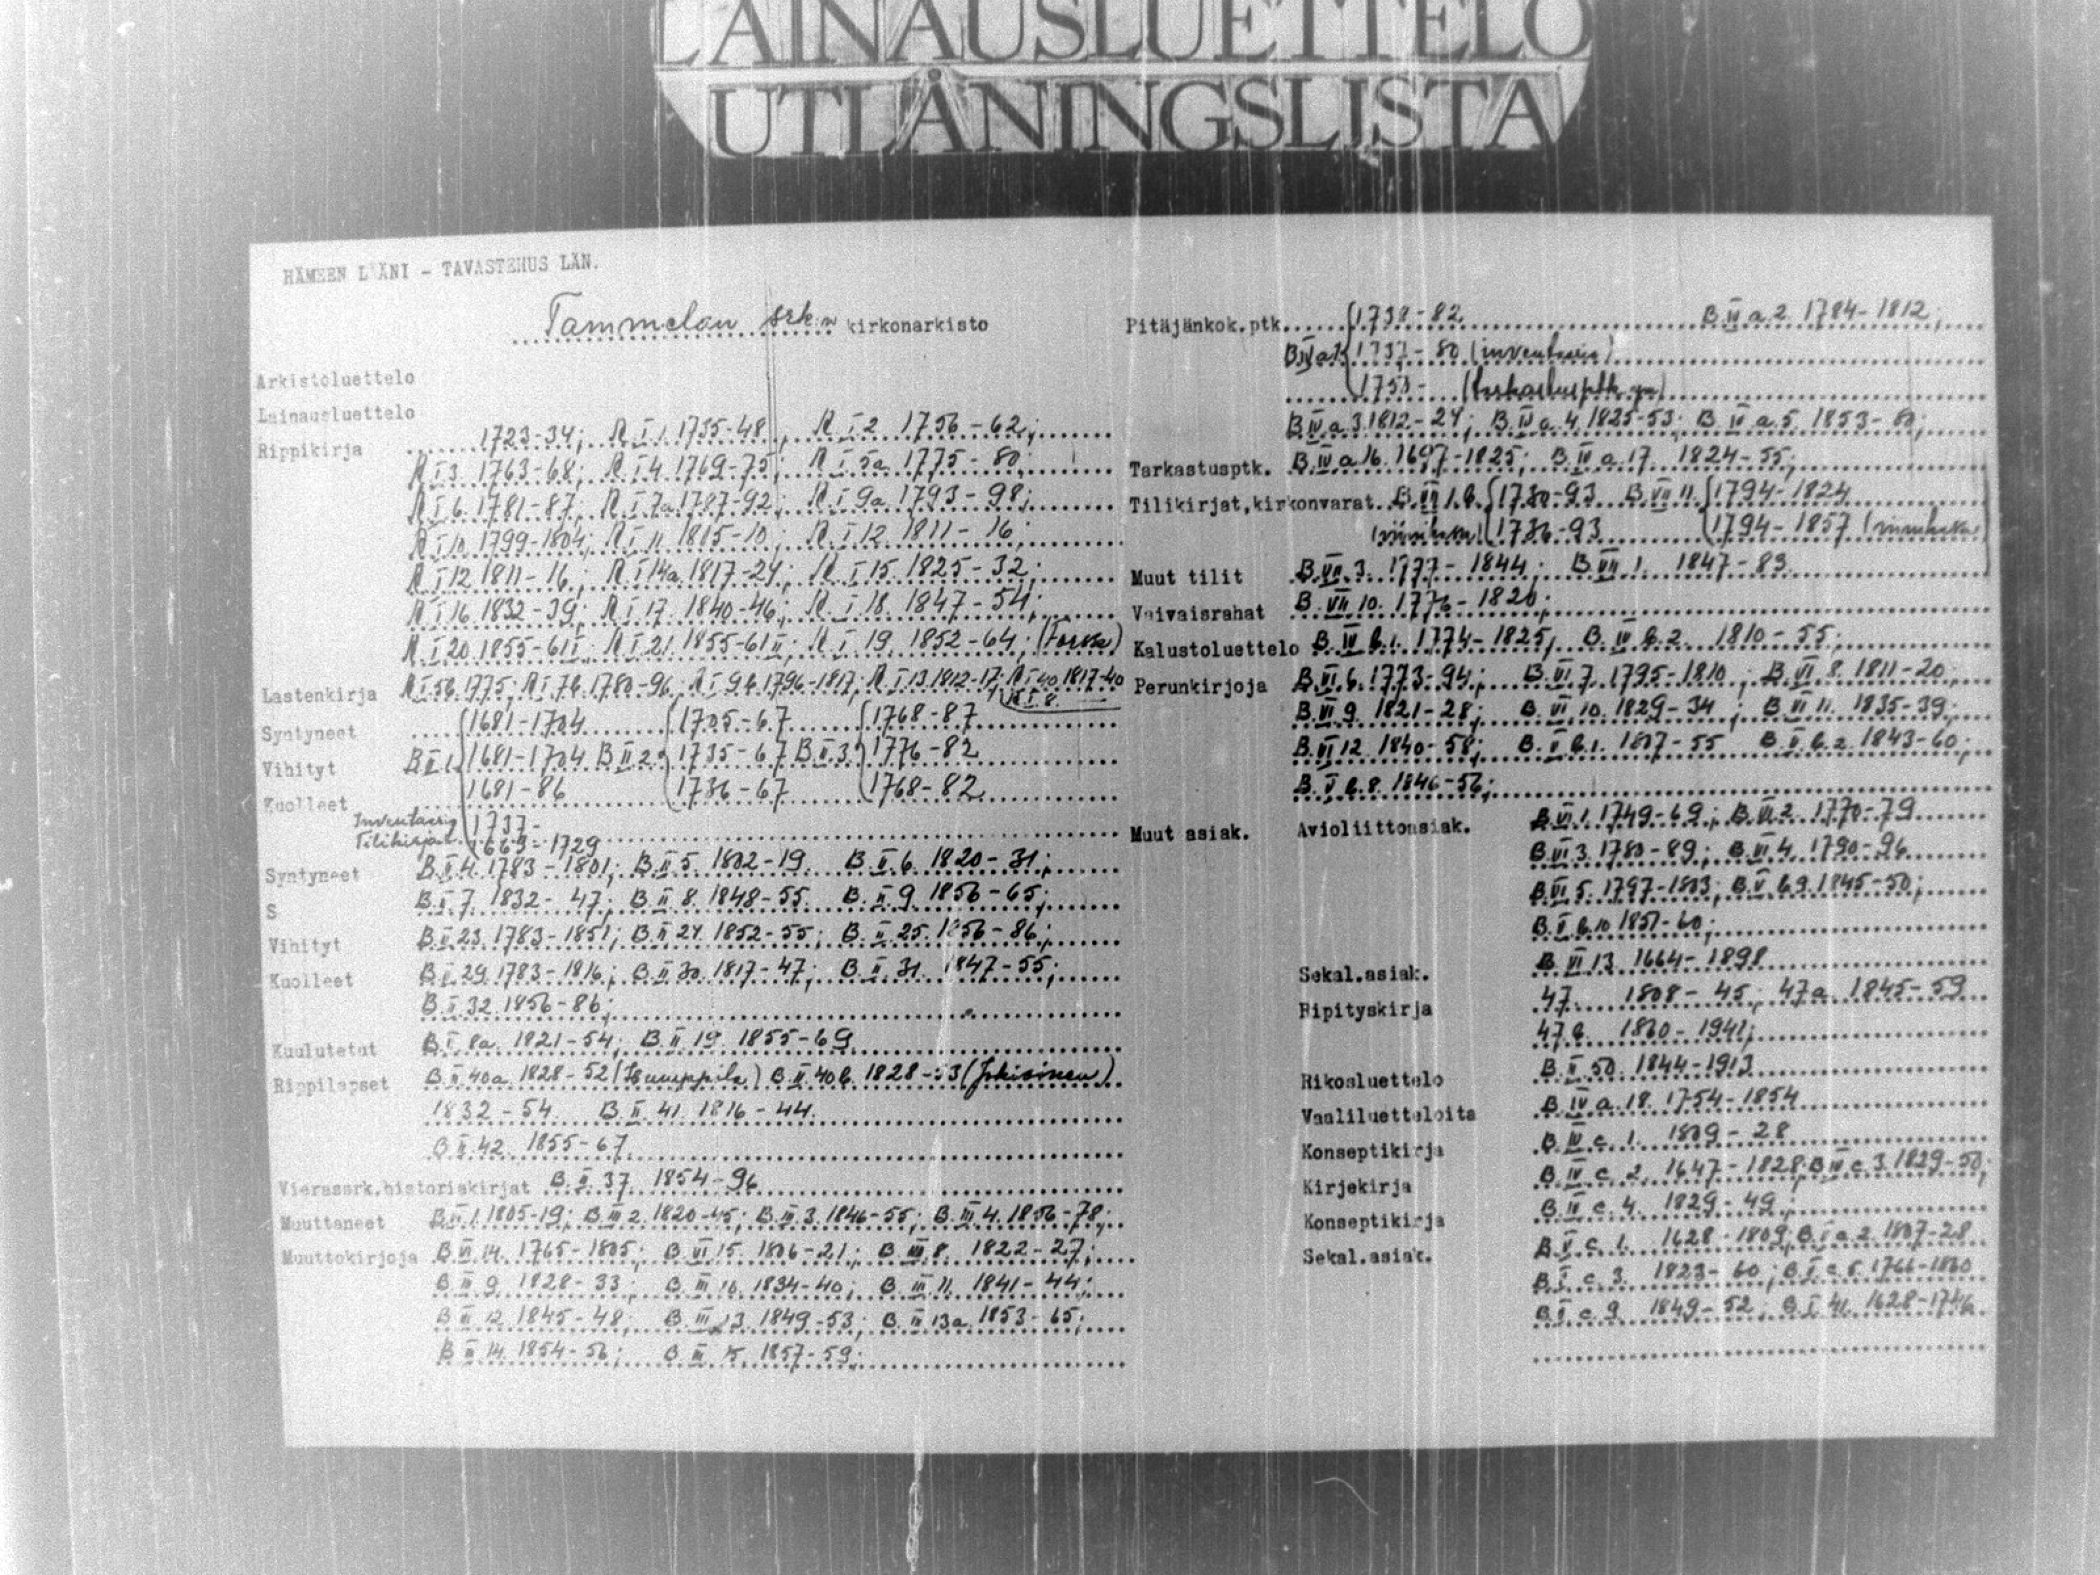 LAINAUSLUETTELO
UTLÅNINGSLISTA
HÄMEEN LÄÄNI - TAVASTEHUS LÄN.
Tammelan srk:n kirkonarkisto
Arkistoluettelo
Lainausluettelo
Rippikirja 1723-34; A I 1 1735-48; A I 2 1756-62;
A I 3 1763-68; A I 4 1769-75; A I 5a 1775-80;
A I 6 1781-87; A I 7a 1787-92; A I 9a 1793-98;
A I 10 1799-1804; A I 11 1805-10; A I 12 1811-16;
A I 12 1811-16; A I 14a 1817-24; A I 15 1825-32;
A I 16 1832-39; A I 17 1840-46; A I 18 1847-54;
A I 20 1855-61 I; A I 21 1855-61 II; A I 19 1852-64; (Forssa)
Lastenkirja A I 5b 1775; A I 7b 1780-96; A I 9b 1796-1817; A I 13 1812-17; A I 40 1817-40
A I 8
Syntyneet 1681-1704 1705-67 1768-87
Vihityt B II 1 1681-1704 B II 2 1735-67 B II 3 1776-82
Kuolleet 1681-86 1736-67 1768-82
Inventaario 1737-
Tilikirjat 1663-1729
Syntyneet B II 4 1783-1801; B II 5 1802-19 B II 6 1820-31;
S B II 7 1832-47; B II 8 1848-55 B II 9 1856-65;
Vihityt B II 23 1783-1851; B II 24 1852-55; B II 25 1856-86;
Kuolleet B II 29 1783-1816; B II 30 1817-47; B II 31 1847-55;
B II 32 1856-86;
Kuulutetut B I 8a 1821-54; B II 19 1855-69
Rippilapset B II 40a 1828-52 (Humppila) B II 40b 1828-53 (Jokioinen)
1832-54 B II 41 1816-44
B II 42 1855-67
Vierassrk.historiakirjat B II 37 1854-96
Muuttaneet B III 1 1805-19; B III 2 1820-45; B III 3 1846-55; B III 4 1856-78;
Muuttokirjoja B VI 14 1765-1805; B VI 15 1806-21; B III 8 1822-27;
B III 9 1828-33; B III 10 1834-40; B III 11 1841-44;
B III 12 1845-48; B III 13 1849-53; B III 13a 1853-65;
B III 14 1854-56; B III 15 1857-59;
Pitäjänkok.ptk. 1738-82 B IV a 2 1784-1812;
B IV a 1 1737-80 (inventaario)
1750-
B IV a 3 1812-24; B IV a 4 1825-53; B IV a 5 1853-80;
Tarkastusptk. B IV a 16 1697-1825; B IV a 17 1824-55;
Tilikirjat,kirkonvarat B VII 1.6 1730-93 B VII 11 1794-1824
1736-93 1794-1857
Muut tilit B VII 3 1777-1844; B VII 1 1847-83
Vaivaisrahat B VII 10 1776-1820;
Kalustoluettelo B IV b 1 1774-1825; B IV b 2 1810-55;
Perunkirjoja B VI 6 1773-94; B VI 7 1795-1810; B VI 8 1811-20;
B VI 9 1821-28; B VI 10 1829-34; B VI 11 1835-39;
B VI 12 1840-58; B V b 1 1807-55 B V b 2 1843-60;
B V b 8 1846-56;
Muut asiak. Avioliittoasiak. B VI 1 1749-69; B VI 2 1770-79
B VI 3 1780-89; B VI 4 1790-96
B VI 5 1797-1803; B V b 9 1845-50;
B V b 10 1851-60;
Sekal.asiak. B VI 13 1664-1898
Ripityskirja 47 1808-45; 47a 1845-59
47b 1860-1941;
Rikosluettelo B II 50 1844-1913
Vaaliluetteloita B IV a 18 1754-1854
Konseptikirja B IV c 1 1809-28
Kirjekirja B IV c 2 1647-1828; B IV c 3 1829-50;
Konseptikirja B IV c 4 1829-49;
Sekal.asiak. B V c 1 1628-1809; B V a 2 1807-28
B V c 3 1823-60; B V c 5 1766-1860
B V c 9 1849-52; B I 41 1628-1746